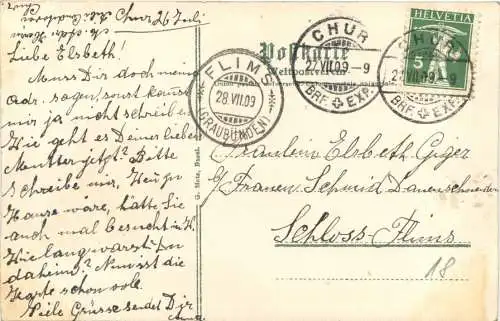 Chur 26 Juli
Liebe Elsbeth!
Muss Dir doch meine
adr. sagen, sonst kannst
mir ja nicht schreiben
Wie geht es Deiner lieben
Mutter jetzt? Bitte
schreibe mir,
Hause wäre, hätte Sie
auch mal besucht i. H.
Wie lang warst Du
daheim? Nun ist die
Karte schon voll.
Viele Grüsse sendet Dir
Postkarte
Weltpostverein
CHUR
27.VII.09–9
BRF. EXP.
HELVETIA
5
CHUR
27.VII.09–9
BRF. EXP.
FLIMS
28.VII.09
(GRAUBÜNDEN)
Fräulein Elsbeth Gyger
p/ Frauen Schmid Dauerschneider
Schloss-Flims
18